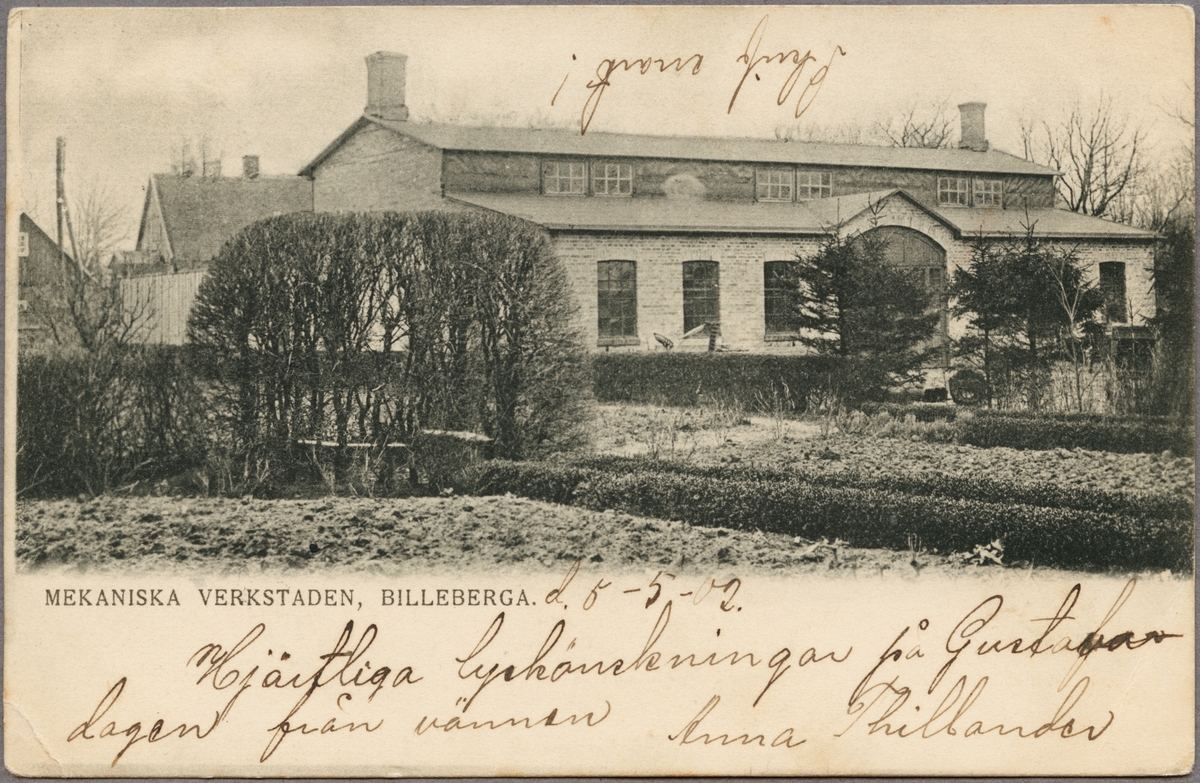 Skrif snart!
MEKANISKA VERKSTADEN, BILLEBERGA. d. 5-5-02.
Hjärtliga lyckönskningar på Gustafva
dagen från vännen Anna Thillander